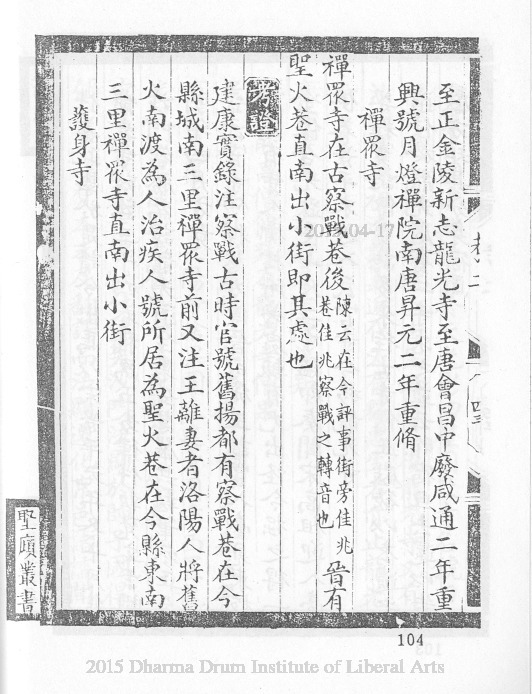 至正金陵新志龍光寺至唐會昌中廢咸通二年重
興號月燈禪院南唐昇元二年重脩
禪眾寺
禪眾寺在古察戰巷後陳云在今評事街旁佳兆巷佳兆察戰之轉音也晉有
聖火巷直南出小街即其處也
考證
建康實錄注察戰古時官號舊揚都有察戰巷在今
縣城南三里禪眾寺前又注王離妻者洛陽人將舊
火南渡為人治疾人號所居為聖火巷在今縣東南
三里禪眾寺直南出小街
護身寺
聖廎叢書
104
2015 Dharma Drum Institute of Liberal Arts